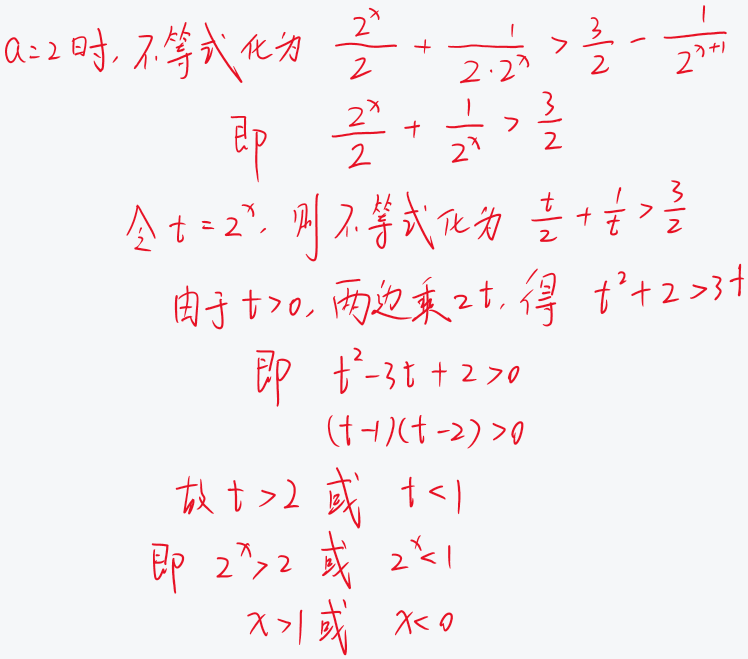 a=2时, 不等式化为 \frac{2^x}{2} + \frac{1}{2·2^x} > \frac{3}{2} - \frac{1}{2^{x+1}}
即 \frac{2^x}{2} + \frac{1}{2^x} > \frac{3}{2}
令 t=2^x, 则不等式化为 \frac{t}{2} + \frac{1}{t} > \frac{3}{2}
由于 t>0, 两边乘2t, 得 t^2+2>3t
即 t^2-3t+2>0
(t-1)(t-2)>0
故 t>2 或 t<1
即 2^x>2 或 2^x<1
x>1 或 x<0